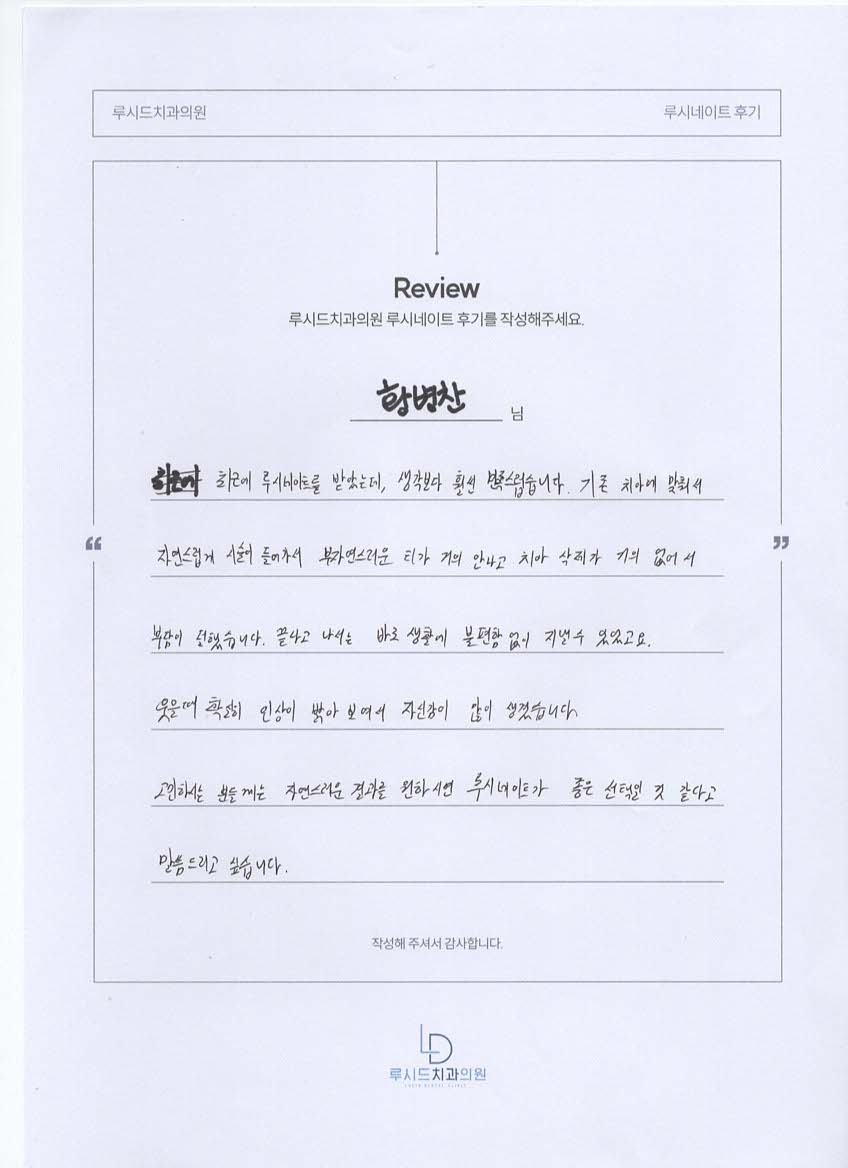 루시드치과의원
루시네이트 후기
Review
루시드치과의원 루시네이트 후기를 작성해주세요.
황병찬 님
최근에 최근에 루시네이트를 받았는데, 생각보다 훨씬 만족스럽습니다. 기존 치아에 맞춰서
“
자연스럽게 시술이 들어가서 부자연스러운 티가 거의 안나고 치아 삭제가 거의 없어서
”
부담이 덜했습니다. 끝나고 나서는 바로 생활에 불편함 없이 지낼 수 있었고요.
웃을때 확실히 인상이 밝아 보여서 자신감이 많이 생겼습니다
고민하시는 분들께는 자연스러운 결과를 원하시면 루시네이트가 좋은 선택일 것 같다고
말씀드리고 싶습니다.
작성해 주셔서 감사합니다.
LD
루시드치과의원
LUCID DENTAL CLINIC